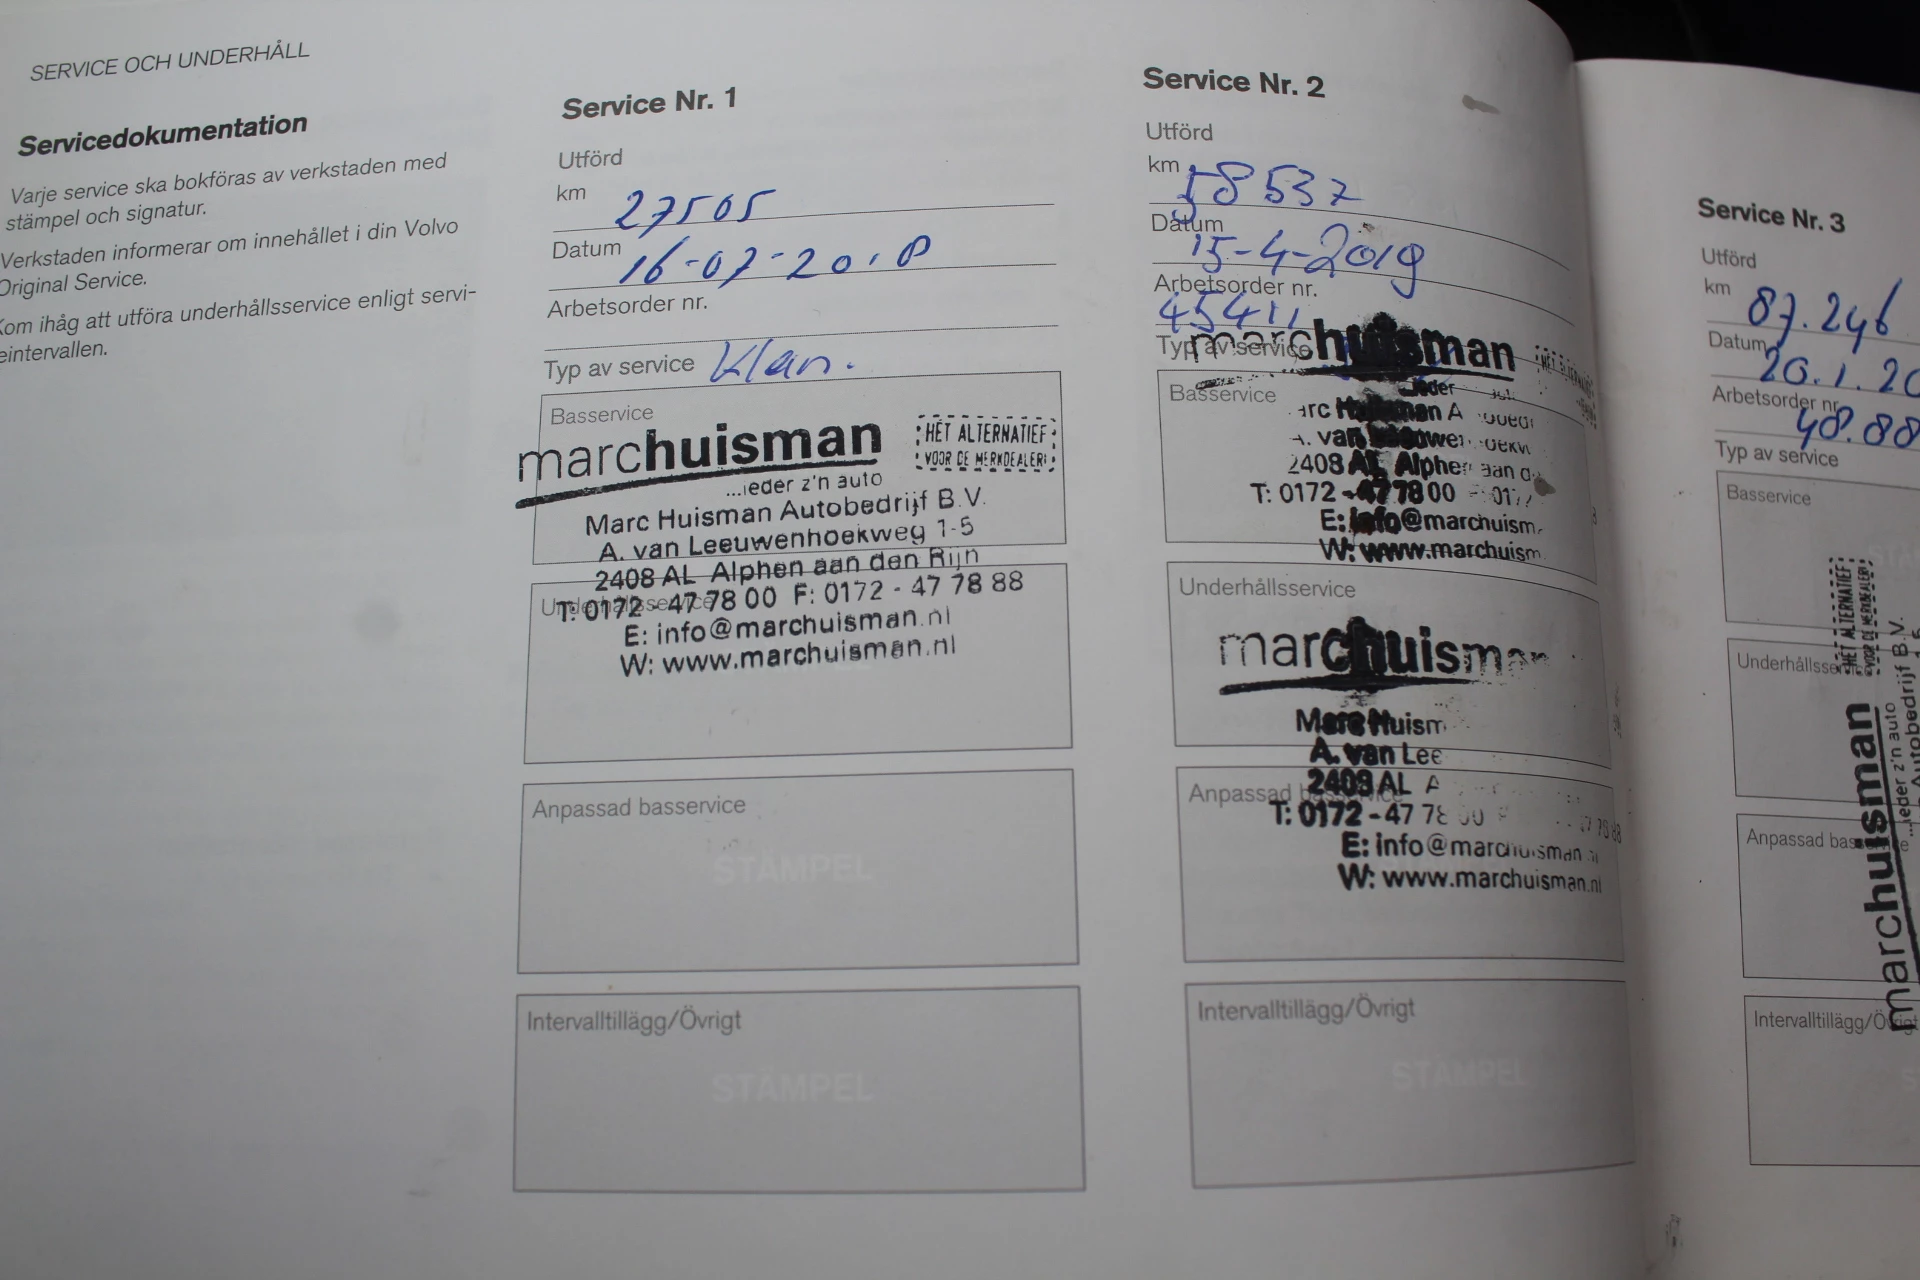 SERVICE OCH UNDERHÅLL
Servicedokumentation
Varje service ska bokföras av verkstaden med
stämpel och signatur.
Verkstaden informerar om innehållet i din Volvo
Original Service.
Kom ihåg att utföra underhållsservice enligt servi-
eintervallen.
Service Nr. 1
Utförd
km 27505
Datum 16-07-2018
Arbetsorder nr.
Typ av service Klan.
Basservice
marchuisman
HÉT ALTERNATIEF
VOOR DE MERKDEALER!
...ieder z'n auto
Marc Huisman Autobedrijf B.V.
A. van Leeuwenhoekweg 1-5
2408 AL Alphen aan den Rijn
Underhållsservice
T: 0172 - 47 78 00 F: 0172 - 47 78 88
E: info@marchuisman.nl
W: www.marchuisman.nl
Anpassad basservice
STÄMPEL
Intervalltillägg/Övrigt
STÄMPEL
Service Nr. 2
Utförd
km 58537
Datum 15-4-2019
Arbetsorder nr.
45411
Typ av service
marchuisman
Basservice
2408 AL Alphen aan d
T: 0172 - 47 78 00
E: info@marchuism
W: www.marchuism
Underhållsservice
marchuisman
Marc Huism
A. van Lee
2408 AL A
Anpassad basservice
T: 0172 - 47 78 00
E: info@marchuisman
W: www.marchuisman.nl
Intervalltillägg/Övrigt
STÄMPEL
Service Nr. 3
Utförd
km 87.246
Datum 20.1.20
Arbetsorder nr
48.88
Typ av service
Basservice
Underhållsservice
Anpassad basservice
Intervalltillägg/Övrigt
HÉT ALTERNATIEF
VOOR DE MERKDEALER!
marchuisman
...ieder z'n auto
Autobedrijf B.V.